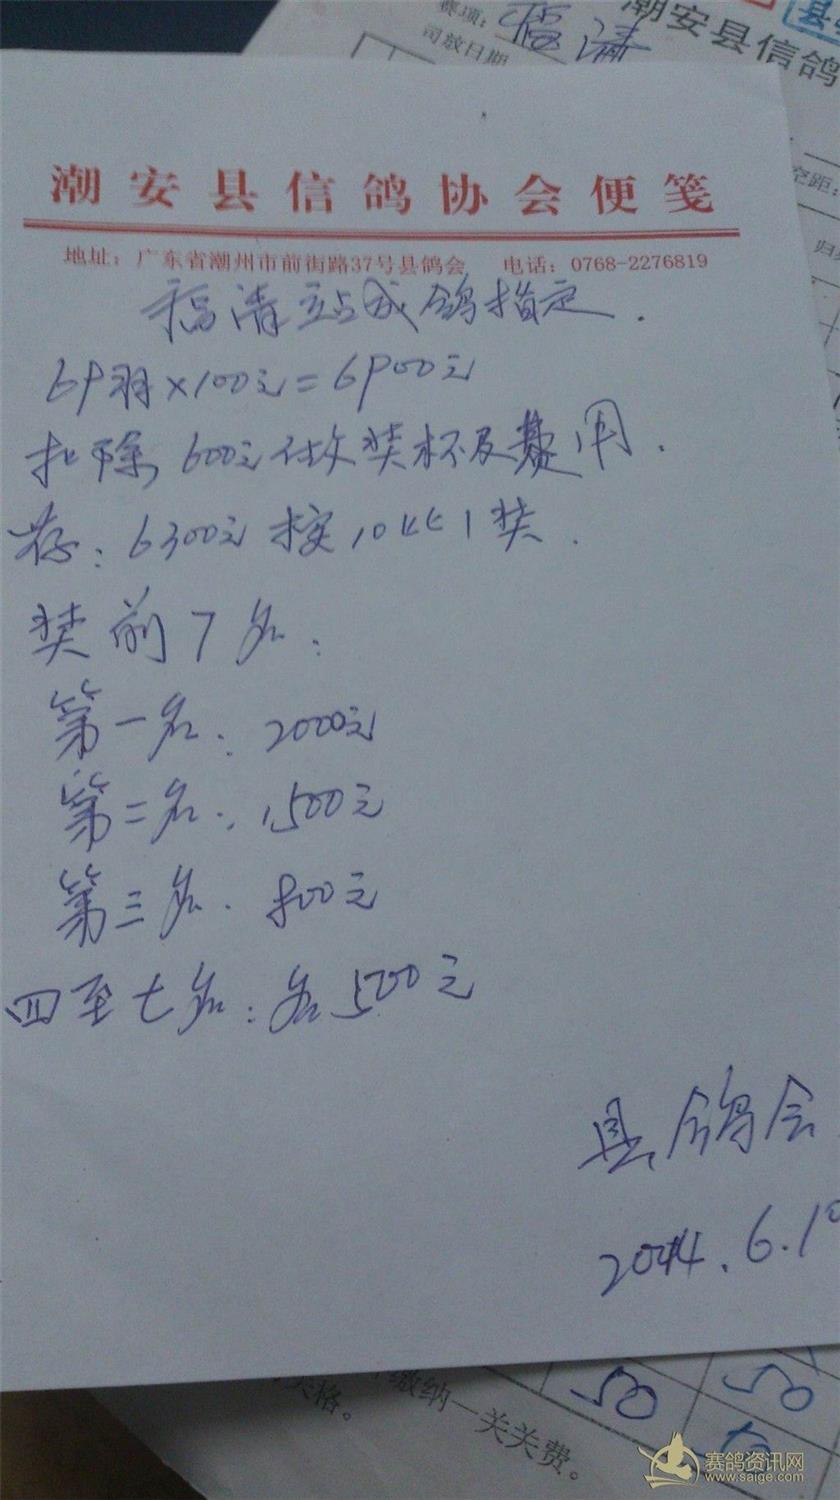 赛项: 福清
司放日期
潮安县信鸽
空距:
潮安县信鸽协会便笺
地址: 广东省潮州市前街路37号县鸽会 电话: 0768-2276819
福清站成鸽指定.
69羽×100元=6900元
扣除600元做奖杯及费用.
存: 6300元按10比1奖.
奖前7名:
第一名: 2000元
第二名: 1500元
第三名. 800元
四至七名: 各500元
县鸽会
2014.6.10
50 50
缴纳一关关费。
赛鸽资讯网
www.saige.com